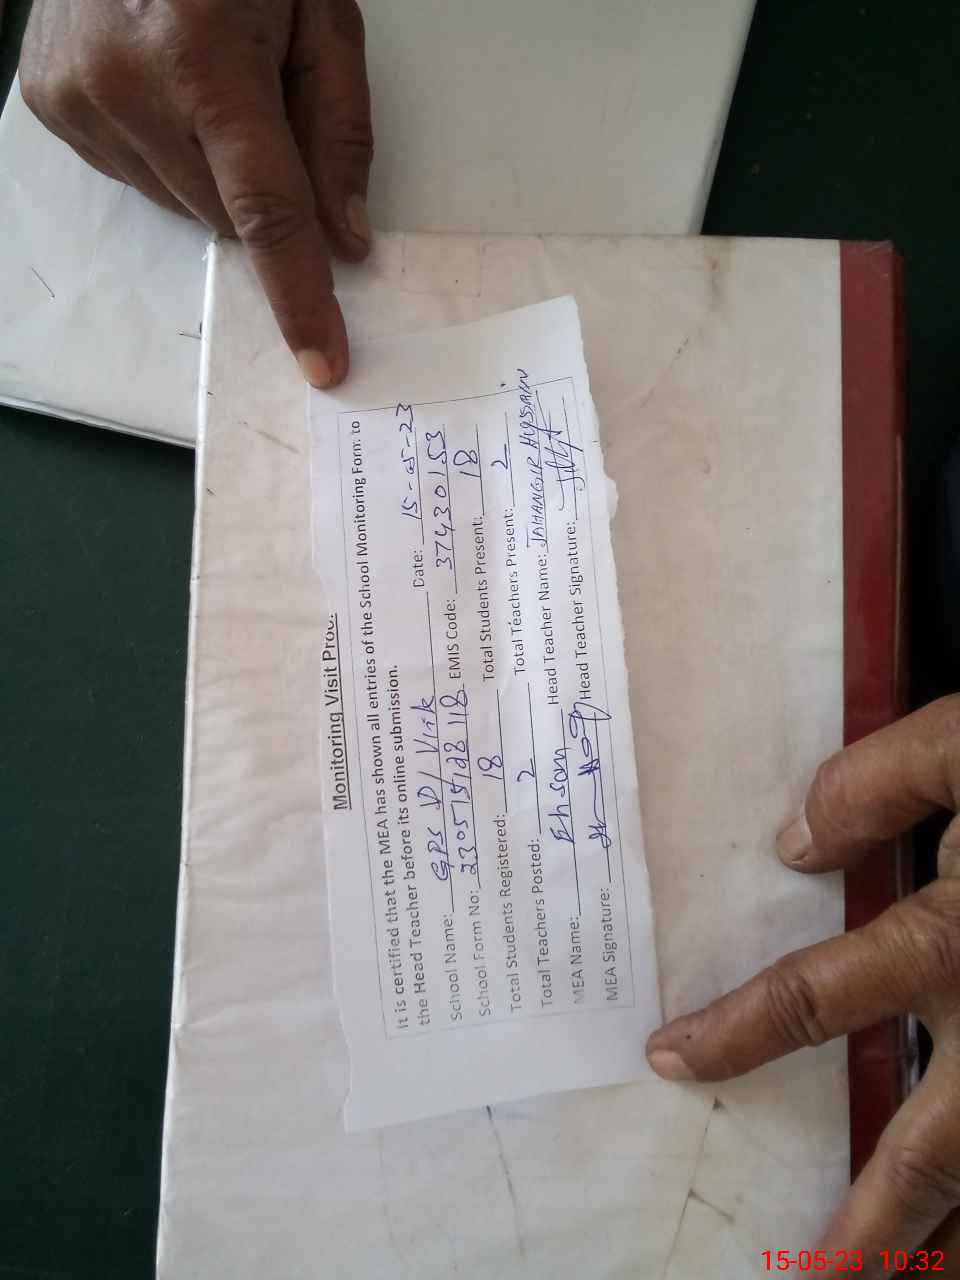 Monitoring Visit Proo
It is certified that the MEA has shown all entries of the School Monitoring Form to
the Head Teacher before its online submission.
School Name: GPS D/ Virk Date: 15-05-23
School Form No: EMIS Code: 37430153
Total Students Registered: 18 Total Students Present: 18
Total Teachers Posted: 2 Total Teachers Present: 2
MEA Name: Ehsan Head Teacher Name: JAHANGIR HUSSAIN
MEA Signature: Head Teacher Signature:
15-05-23 10:32